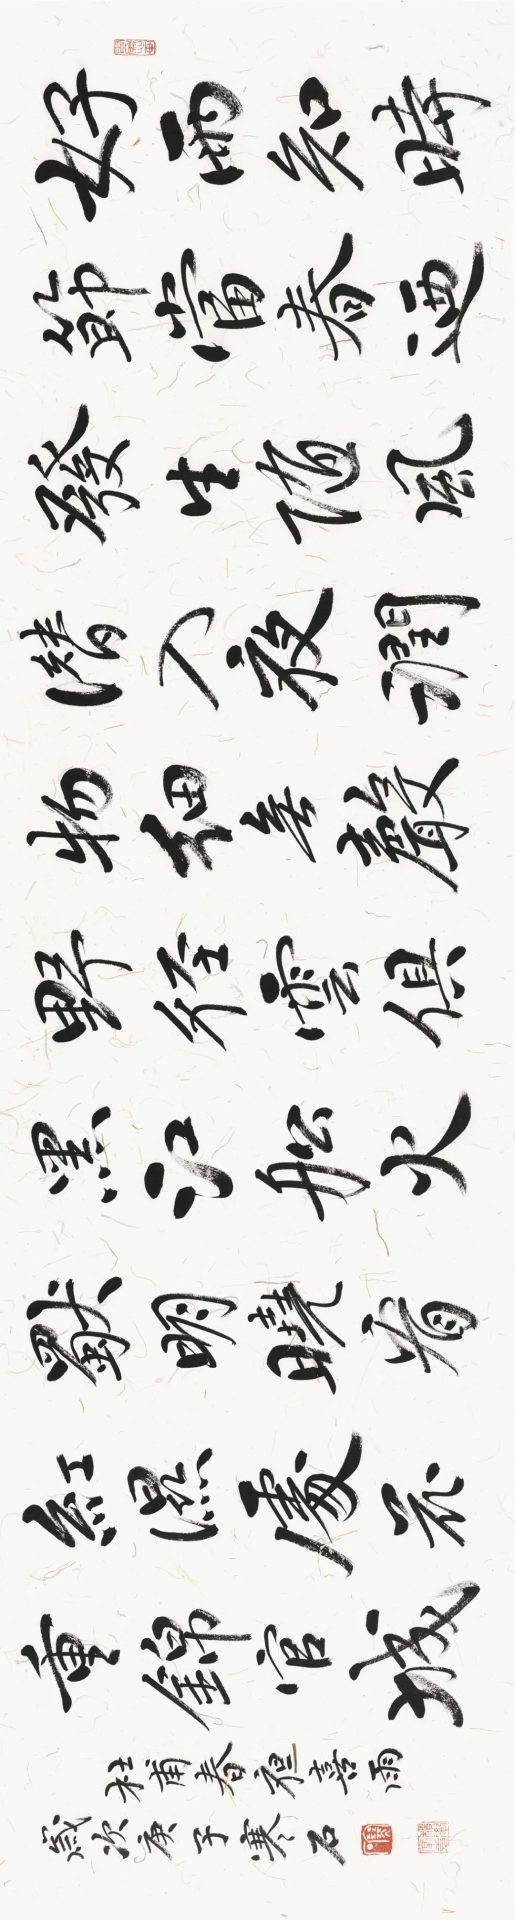 好雨知時
節當春迺
發生随風
潛入夜潤
物細無聲
野徑雲俱
黑江舩火
獨明曉看
紅濕處花
重錦官城
杜甫春夜喜雨
歲次庚子寒石